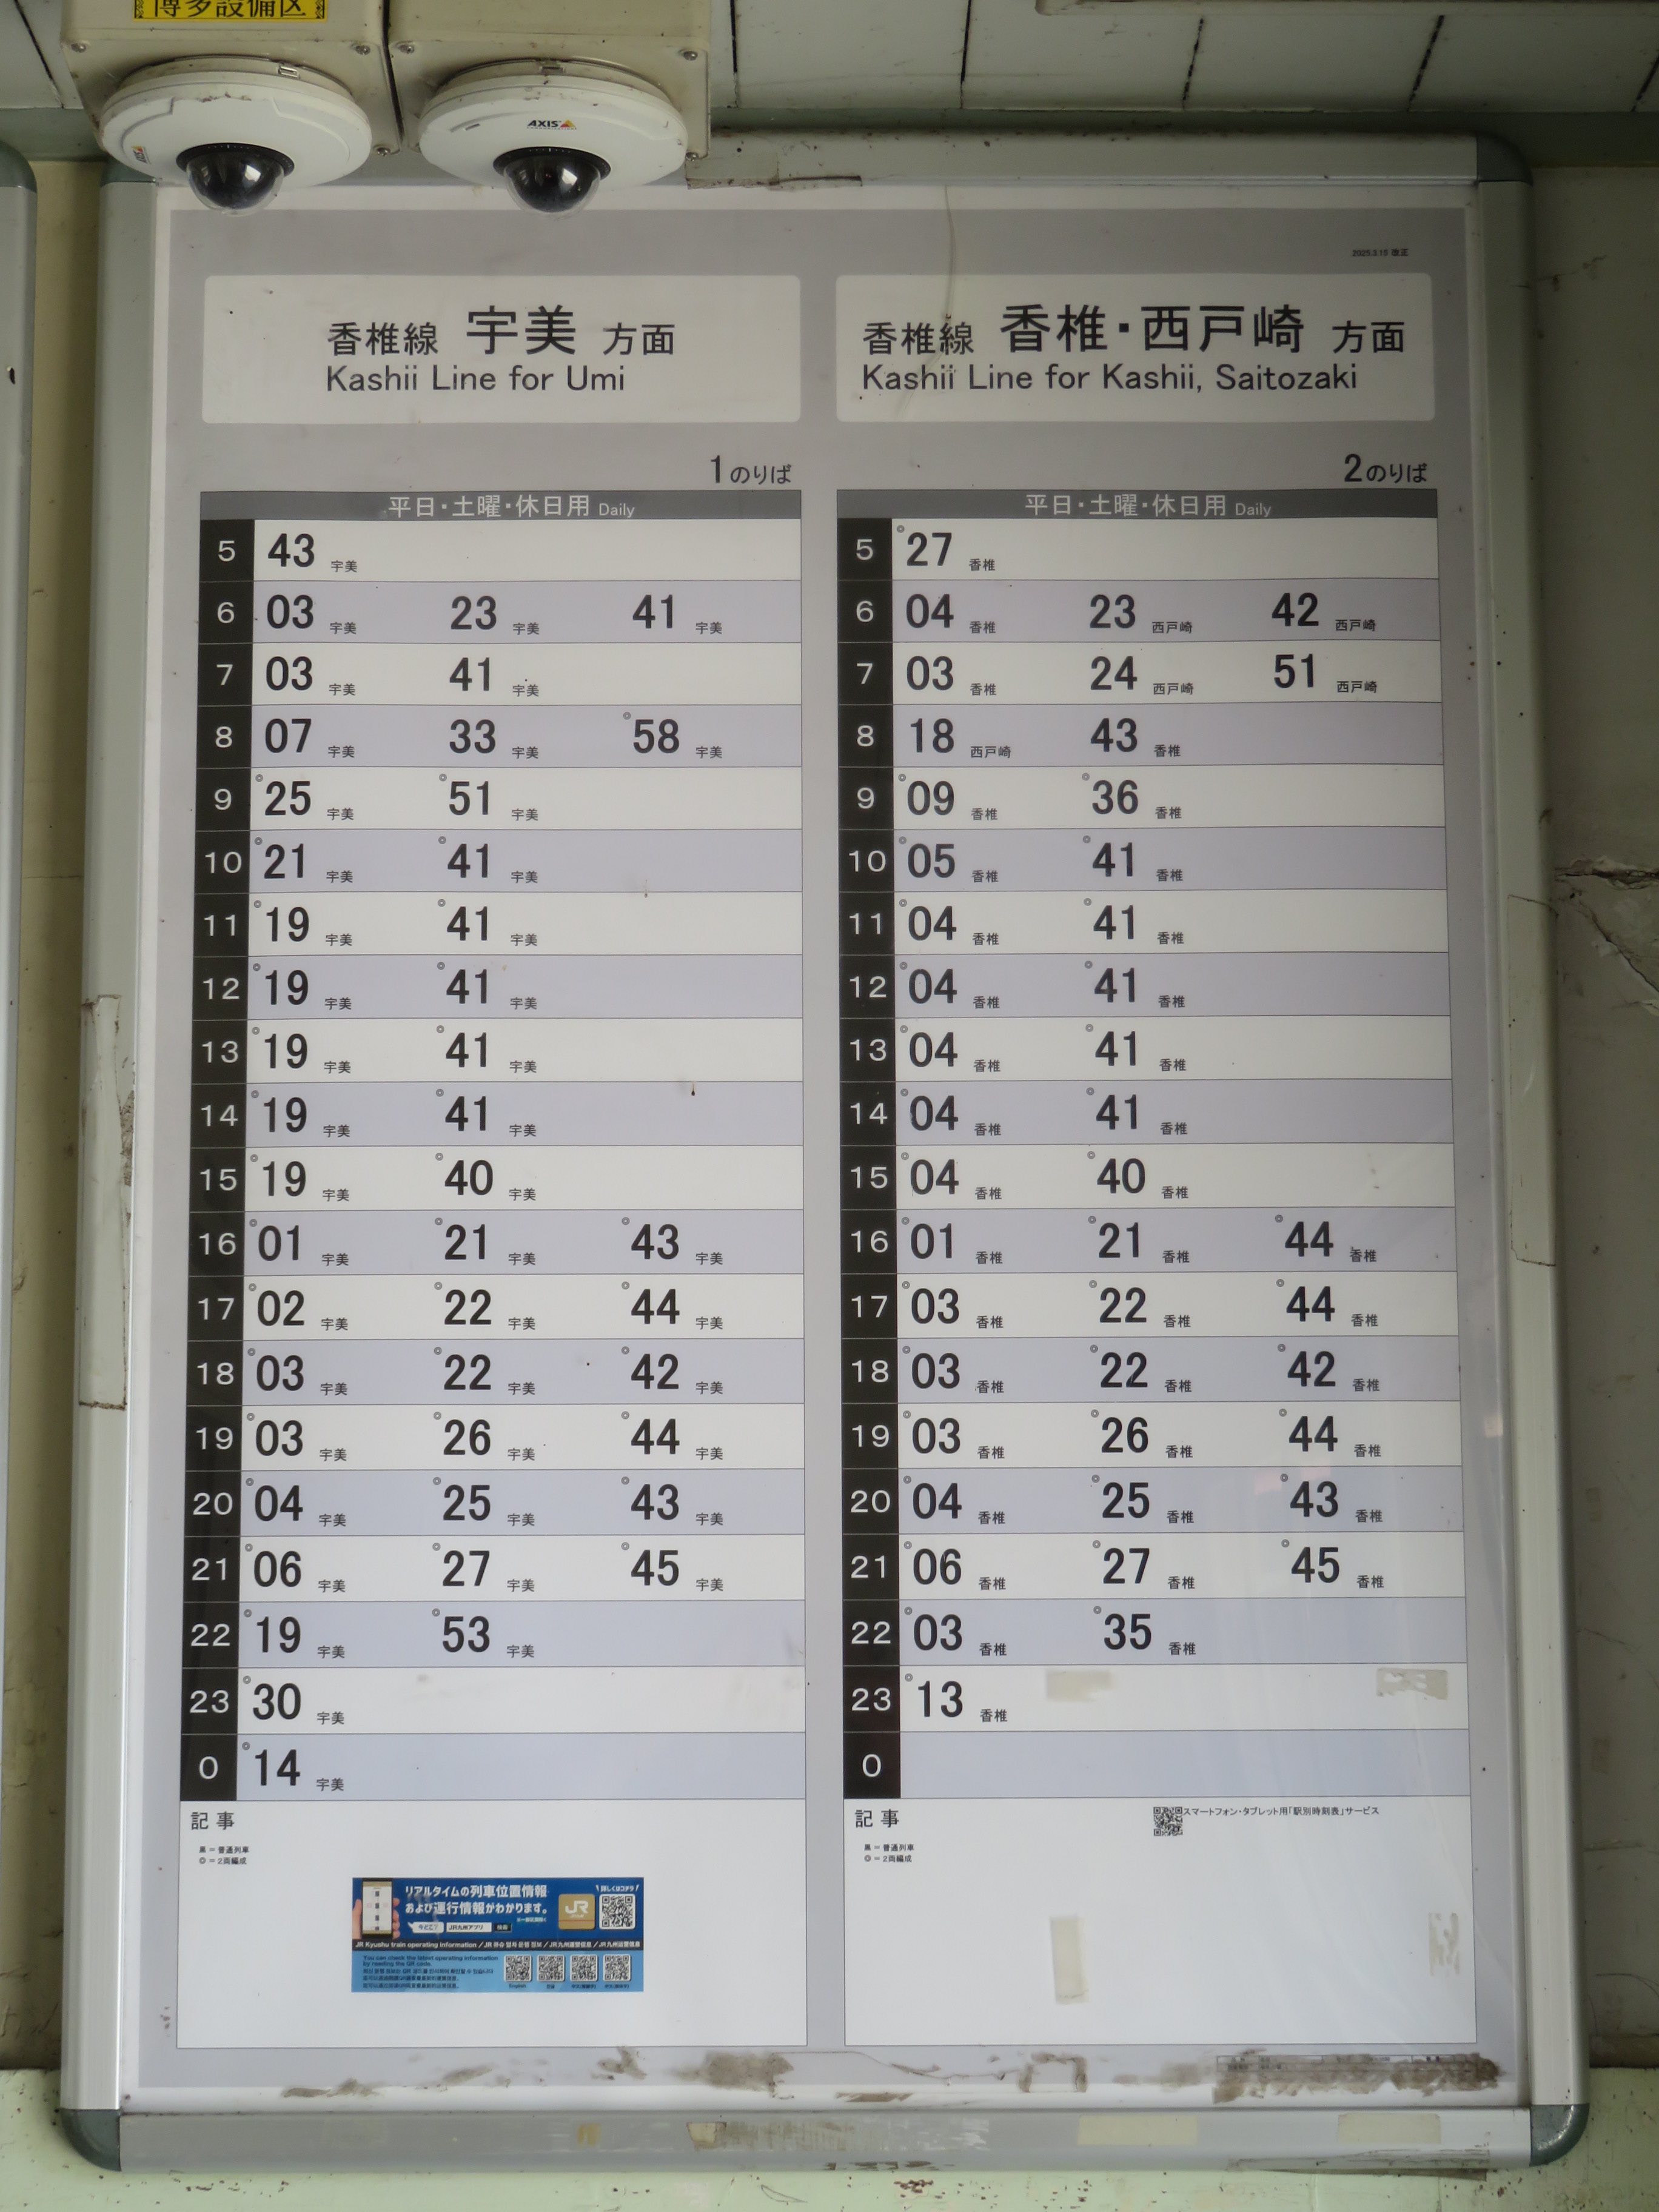 博多設備区
AXIS
AXIS
2025.3.15 改正
香椎線 宇美 方面
Kashii Line for Umi
1のりば
平日・土曜・休日用 Daily
5 43 宇美
6 03 宇美 23 宇美 41 宇美
7 03 宇美 41 宇美
8 07 宇美 33 宇美 ◎58 宇美
9 ◎25 宇美 ◎51 宇美
10 ◎21 宇美 ◎41 宇美
11 ◎19 宇美 ◎41 宇美
12 ◎19 宇美 ◎41 宇美
13 ◎19 宇美 ◎41 宇美
14 ◎19 宇美 ◎41 宇美
15 ◎19 宇美 ◎40 宇美
16 ◎01 宇美 ◎21 宇美 ◎43 宇美
17 ◎02 宇美 ◎22 宇美 ◎44 宇美
18 ◎03 宇美 ◎22 宇美 ◎42 宇美
19 ◎03 宇美 ◎26 宇美 ◎44 宇美
20 ◎04 宇美 ◎25 宇美 ◎43 宇美
21 ◎06 宇美 ◎27 宇美 ◎45 宇美
22 ◎19 宇美 ◎53 宇美
23 ◎30 宇美
0 ◎14 宇美
記事
黒=普通列車
◎=2両編成
リアルタイムの列車位置情報
および運行情報がわかります。
詳しくはコチラ!
今どこ? JR九州アプリ 検索
JR
JR Kyushu train operating information / JR 큐슈 열차 운행 정보 / JR九州運營信息 / JR九州运营信息
You can check the latest operating information
by reading the QR code.
English
香椎線 香椎・西戸崎 方面
Kashii Line for Kashii, Saitozaki
2のりば
平日・土曜・休日用 Daily
5 ◎27 香椎
6 04 香椎 23 西戸崎 42 西戸崎
7 03 香椎 24 西戸崎 51 西戸崎
8 18 西戸崎 43 香椎
9 ◎09 香椎 ◎36 香椎
10 ◎05 香椎 ◎41 香椎
11 ◎04 香椎 ◎41 香椎
12 ◎04 香椎 ◎41 香椎
13 ◎04 香椎 ◎41 香椎
14 ◎04 香椎 ◎41 香椎
15 ◎04 香椎 ◎40 香椎
16 ◎01 香椎 ◎21 香椎 ◎44 香椎
17 ◎03 香椎 ◎22 香椎 ◎44 香椎
18 ◎03 香椎 ◎22 香椎 ◎42 香椎
19 ◎03 香椎 ◎26 香椎 ◎44 香椎
20 ◎04 香椎 ◎25 香椎 ◎43 香椎
21 ◎06 香椎 ◎27 香椎 ◎45 香椎
22 ◎03 香椎 ◎35 香椎
23 ◎13 香椎
0
記事
黒=普通列車
◎=2両編成
スマートフォン・タブレット用「駅別時刻表」サービス